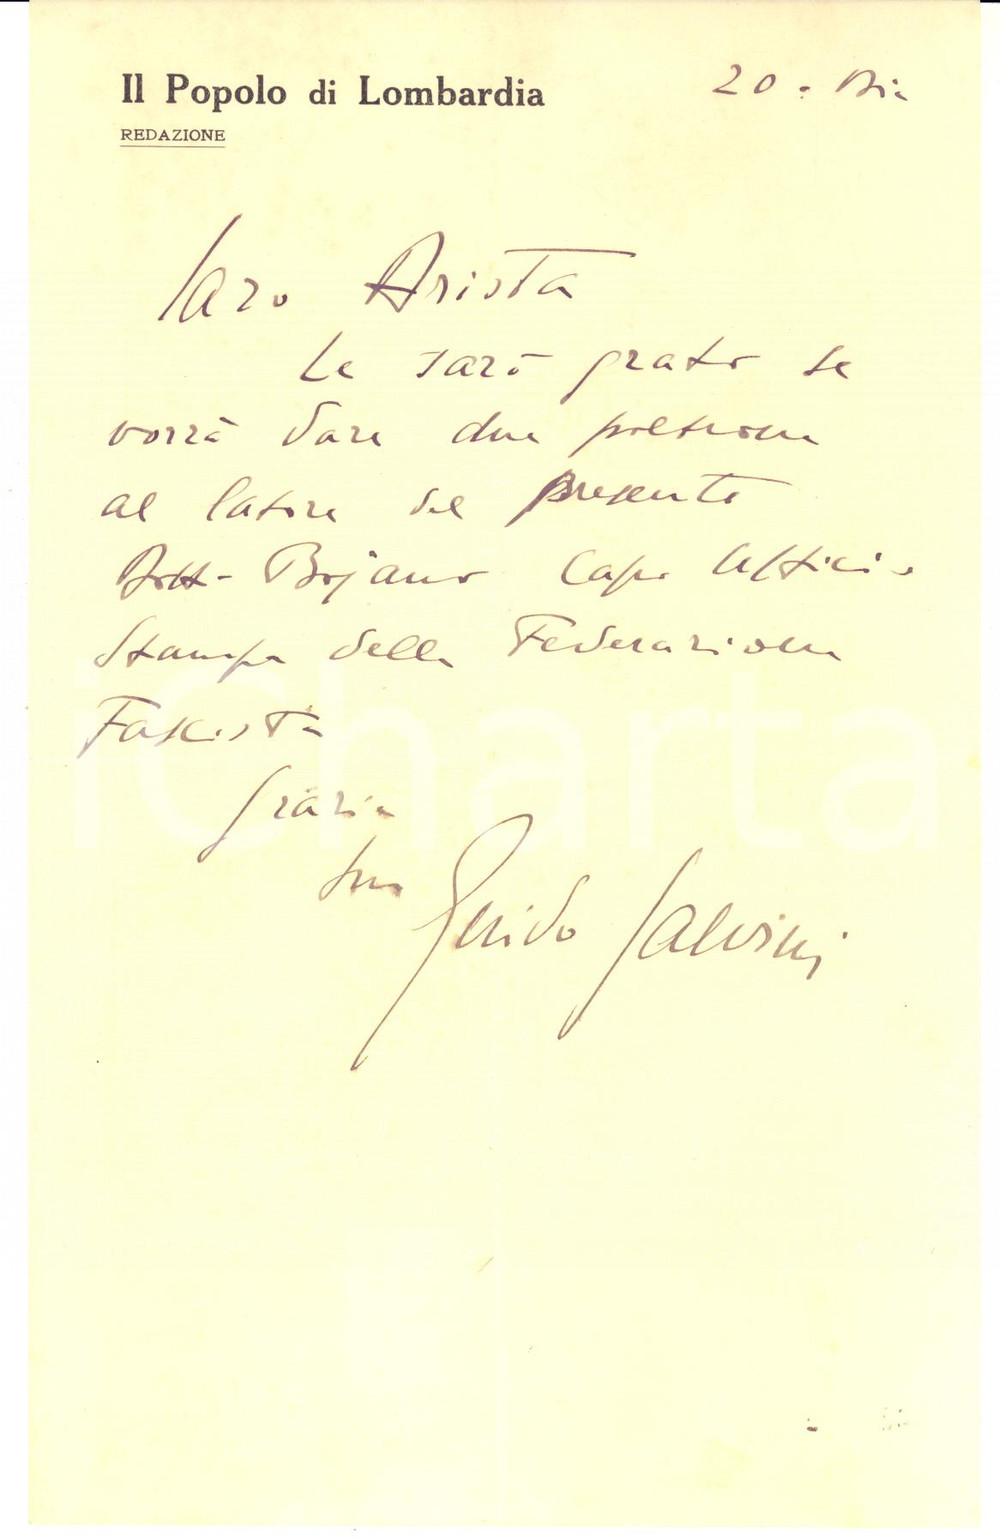 Il Popolo di Lombardia
REDAZIONE
20 . Dic
Caro Arista
Le sarò grato se
vorrà dare due poltrone
al latore del presente
Dott- Bojano Capo Ufficio
Stampa della Federazione
Fascista
Grazie
Suo Guido Salvini
iCharta